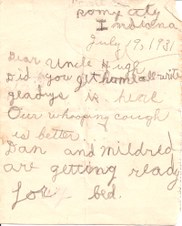 Rome City
Indiana
July 19, 1931
Dear Uncle Hugh
Did you get home all write
gladys is heal
Our whooping cough
is better.
Dan and mildred
are getting ready
for bed.